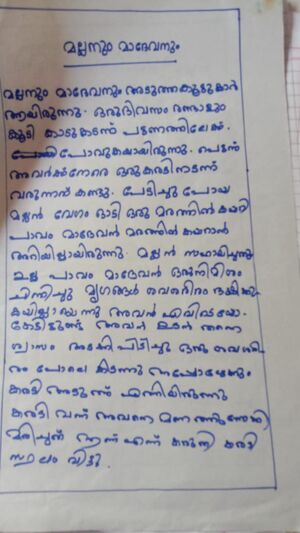 മല്ലനും മാദേവനും
മല്ലനും മാദേവനും അടുത്തകൂട്ടുകാർ
ആയിരുന്നു. ഒരുദിവസം രണ്ടാളും
കൂടി കാടുകടന്ന് പട്ടണത്തിലേക്ക്
പോവുകയായിരുന്നു. പെട്ടന്ന്
അവർക്ക്നേരെ ഒരുകരടി നടന്ന്
വരുന്നത് കണ്ടു. പേടിച്ചു പോയ
മല്ലൻ വേഗം ഓടി ഒരു മരത്തിൽ കയറി
പാവം മാദേവൻ മരത്തിൽ കയറാൻ
അറിയില്ലായിരുന്നു. മല്ലൻ സഹായിച്ചുന്നു
ഇല്ല പാവം മാദേവൻ ഒരുനിമിഷം
ചിന്തിച്ചു മൃഗങ്ങൾ ശവശരീരം ഭക്ഷിക്കു
കയില്ലായെന്നു അവൻ എവിടെയോ
കേട്ടിട്ടുണ്ട് അവൻ ഉടൻ തന്നെ
ശ്വാസം അടക്കി പിടിച്ചു ഒരു ശവശരീ
രം പോലെ കിടന്നു അപ്പോഴേക്കും
കരടി അടുത്ത് എത്തിയിരുന്നു
കരടി വന്ന് അവനെ മണത്തുനോക്കി
മരിച്ചത് ആണ് എന്ന് കരുതി കരടി
സ്ഥലം വിട്ടു.